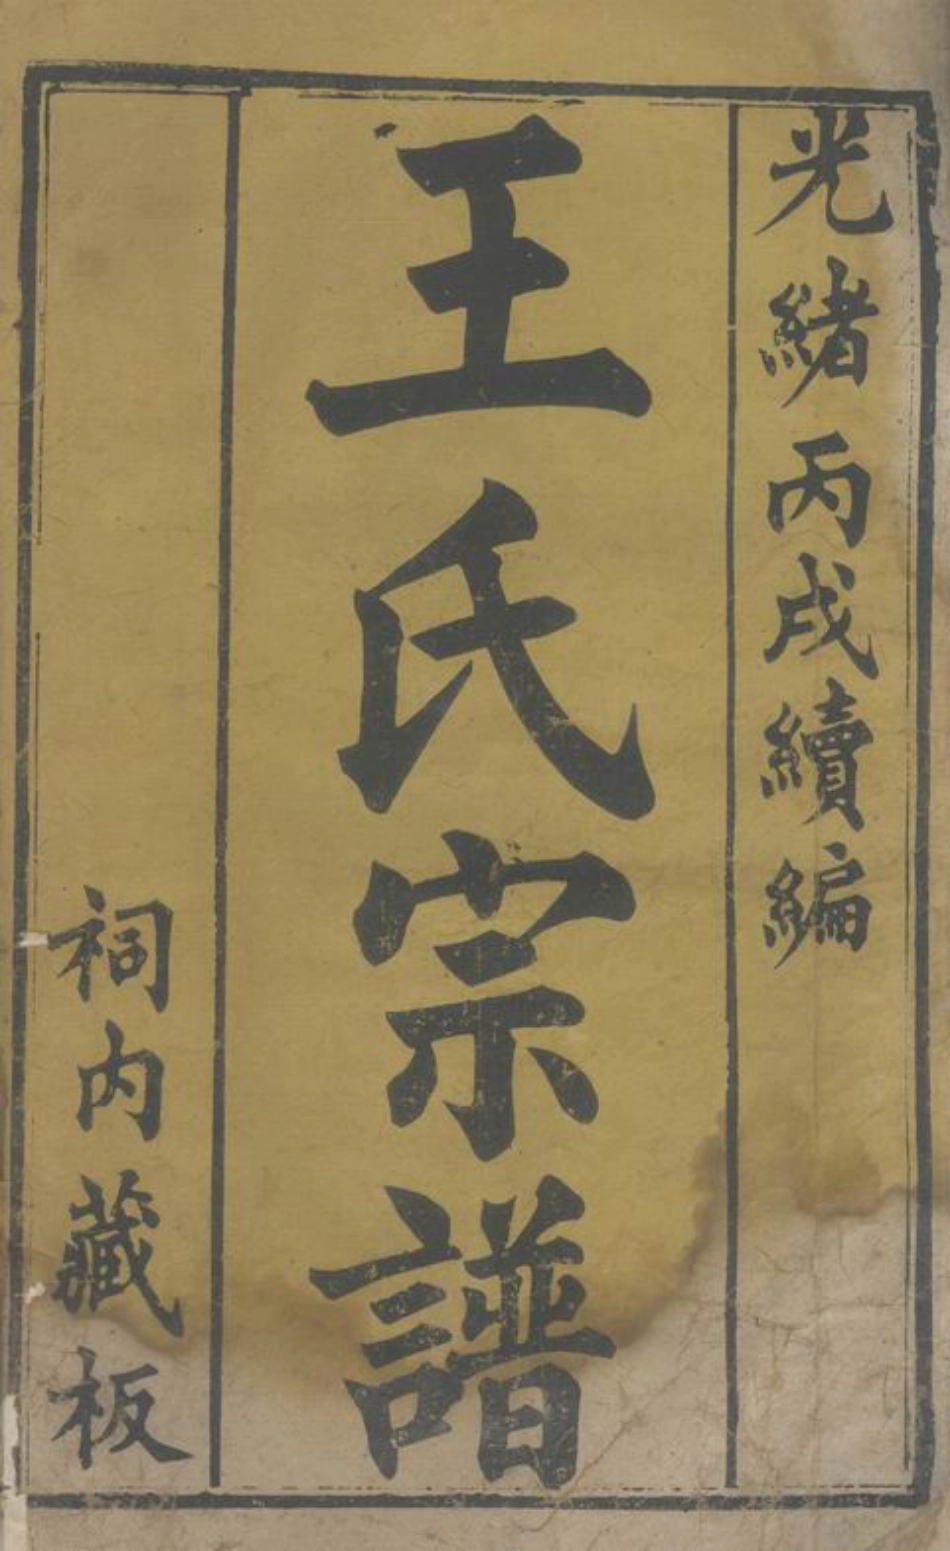 光緒丙戌續編
王氏宗譜
祠內藏板